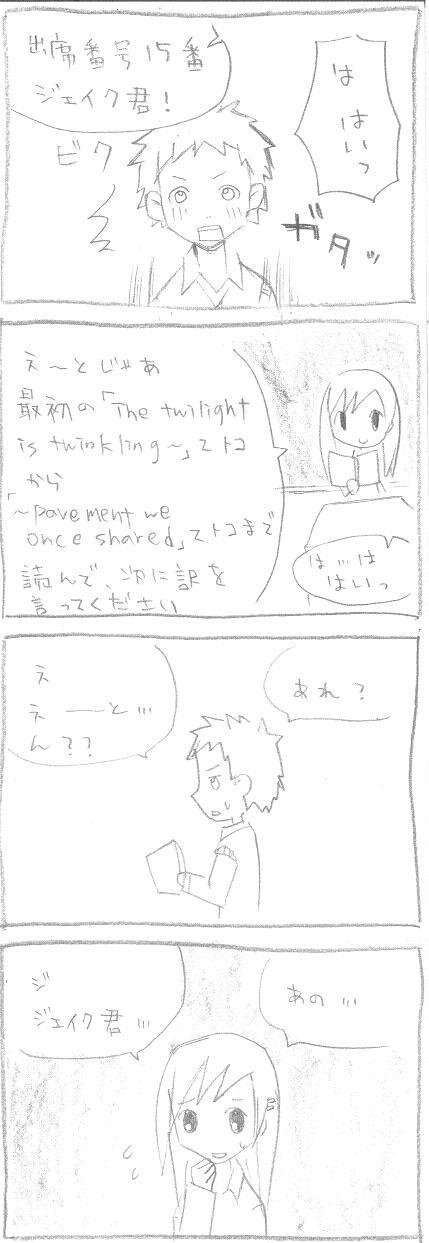 出席番号15番
ジェイク君!
は はいっ
ビク
ガタッ
え〜とじゃあ
最初の「The twilight
is twinkling〜」てトコ
から
「〜pavement we
once shared」てトコまで
読んで、次に訳を
言ってください
は…は
はいっ
あれ?
え
えーと…
ん??
あの…
ジ
ジェイク君…